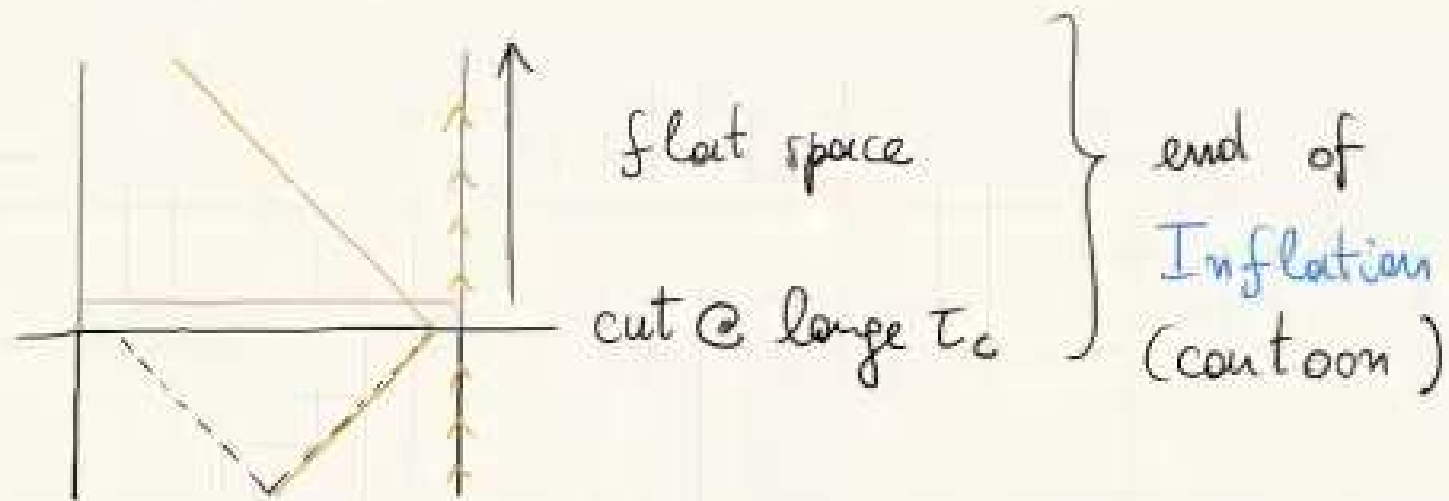 flat space
cut @ large τc
end of
Inflation
(cartoon)